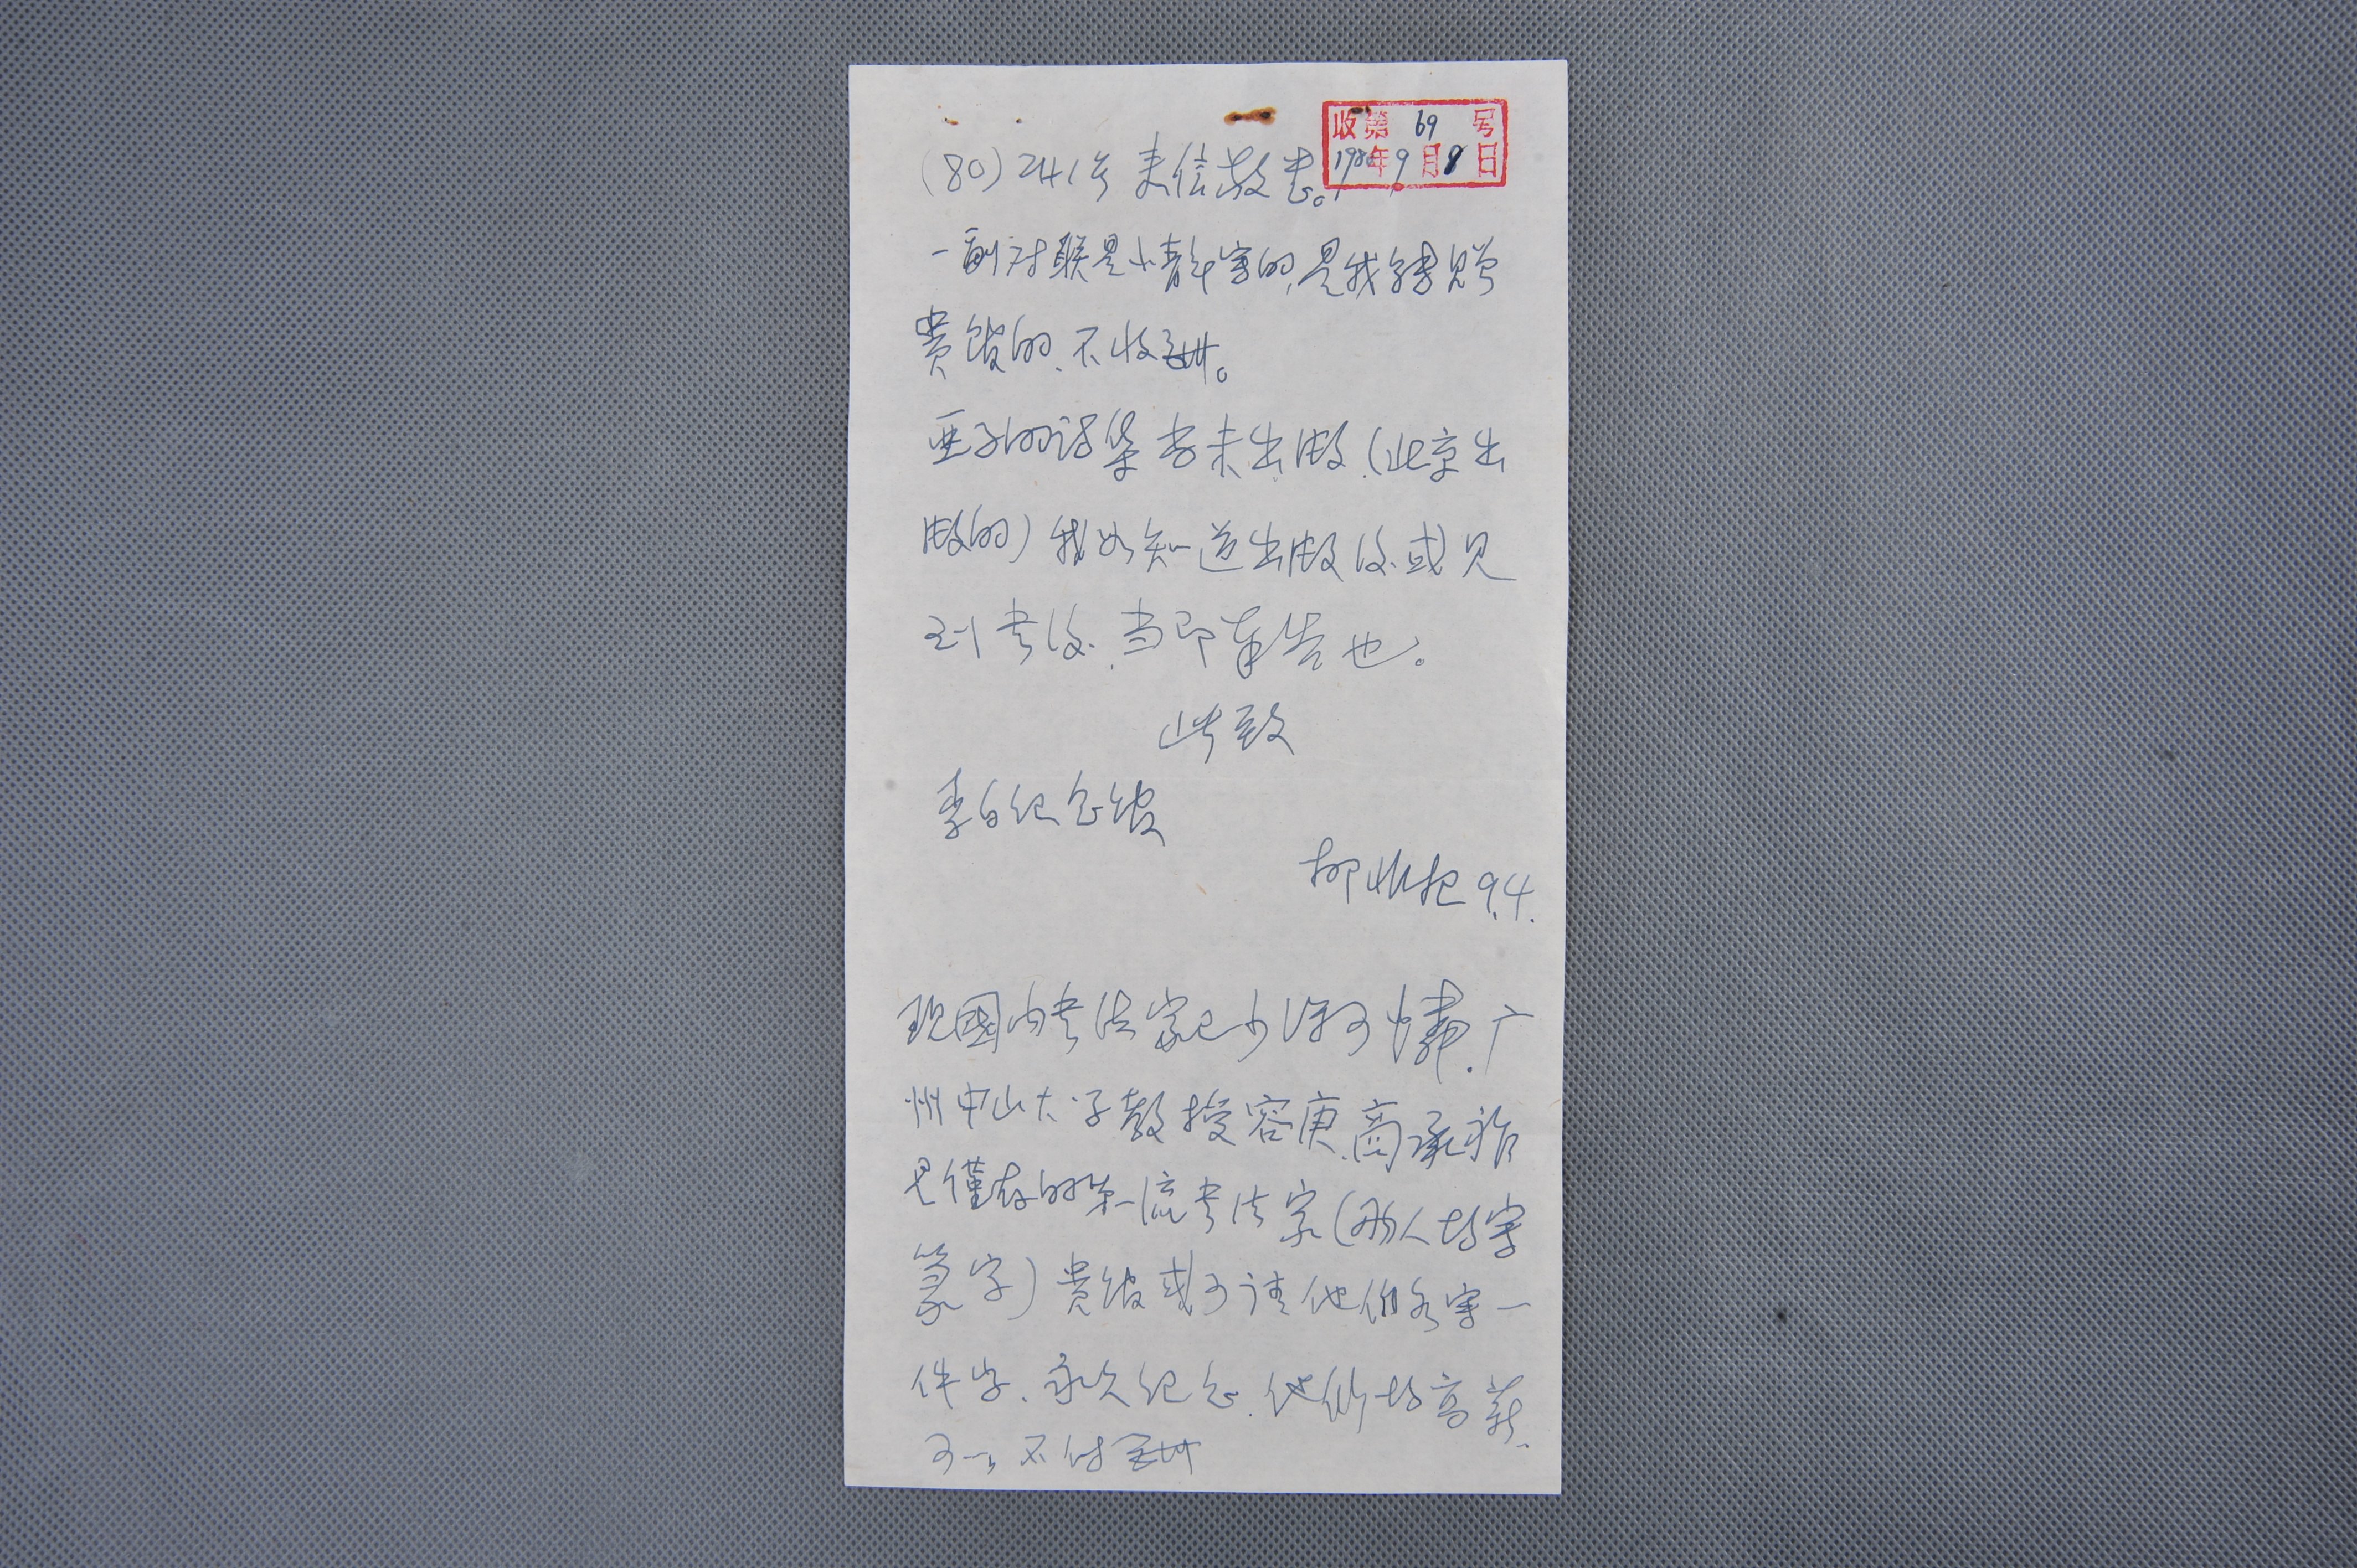 收第 69 号
1980年9月8日
(80)241号来信敬悉。
一副对联是小青年写的,是我转赠
贵馆的、不收酬。
亚子的诗集书未出版(北京出
版的)我如知道出版后.或见
到书后、当即奉告也。
此致
李白纪念馆
柳非杞 9.4.
现國内书法家已少得可怜.广
州中山大学教授容庚、商承祚
是僅存的第一流书法家(两人均写
篆字)贵馆或可请他们各写一
件字、永久纪念.他们均高薪、
可以不付酬